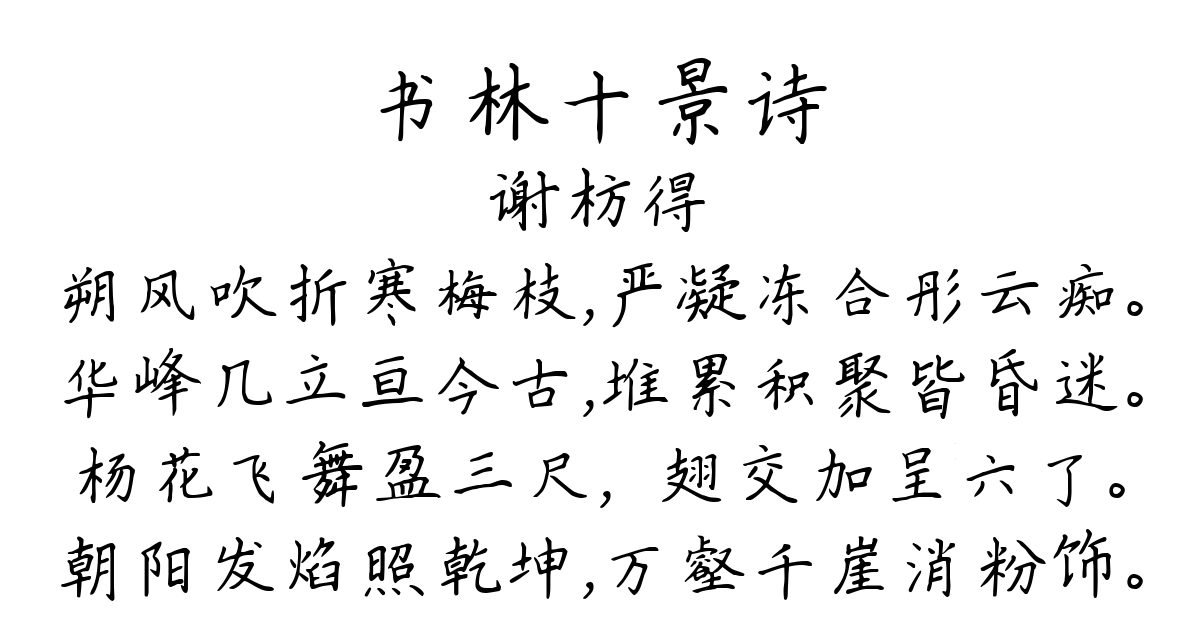 书林十景诗
谢枋得
朔风吹折寒梅枝,严凝冻合彤云痴。
华峰几立亘今古,堆累积聚皆昏迷。
杨花飞舞盈三尺,翅交加呈六了。
朝阳发焰照乾坤,万壑千崖消粉饰。